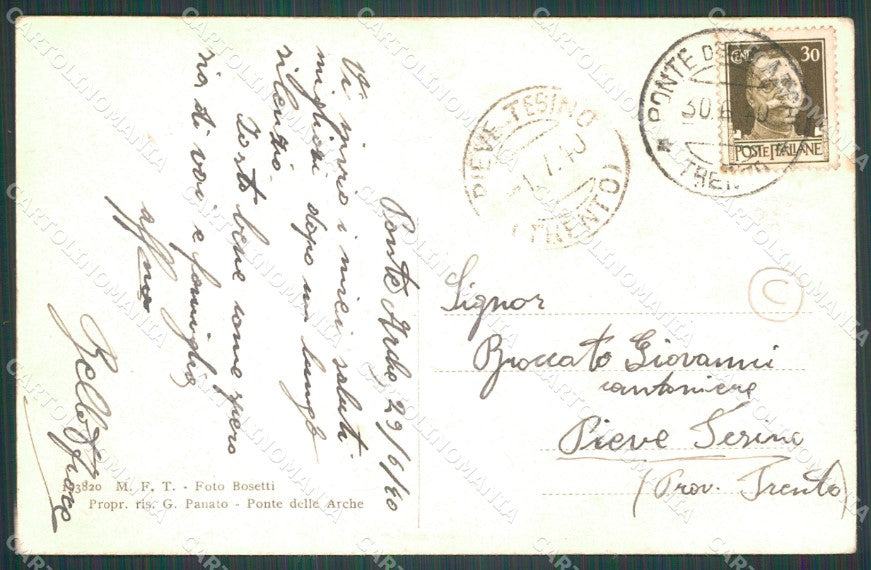 Ponte Arche 29/6/40
Vi invio i miei saluti
migliori dopo un lungo
silenzio
Sto bene come spero
sia di voi e famiglia
affmo
PONTE DELLE ARCHE
30.6.40
TRENTO
CENT 30
POSTE ITALIANE
PIEVE TESINO
1.7.40
(TRENTO)
C
Signor
Broccato Giovanni
cantoniere
Pieve Tesino
(Prov. Trento)
103820 M. F. T. - Foto Bosetti
Propr. ris. G. Panato - Ponte delle Arche
CARTOLINOMANIA